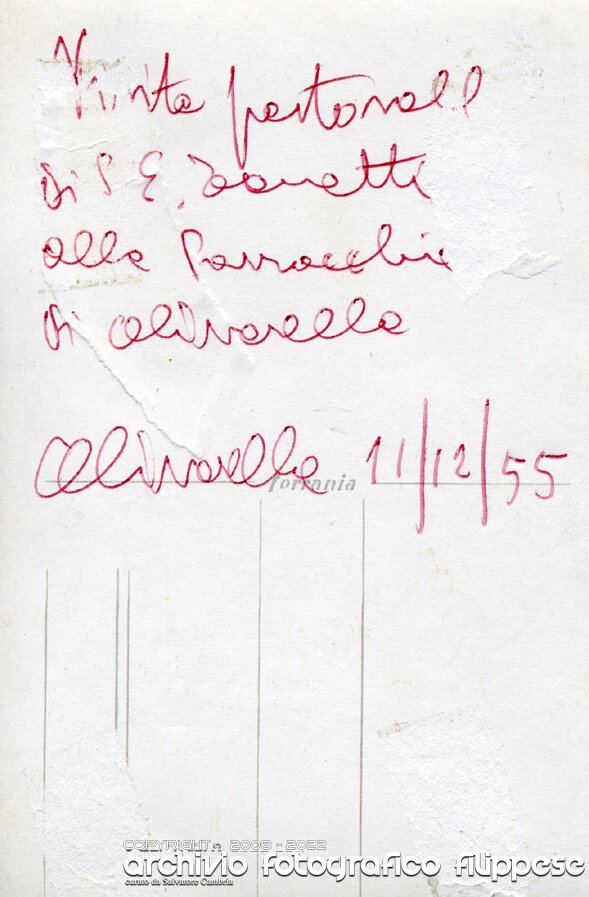 Visita pastorale
di S E. Zanetti
alla Parrocchia
di Olivarella
Olivarella 11/12/55
ferrania
COPYRIGHT © 2009 - 2022
archivio fotografico filippese
curato da Salvatore Cambria